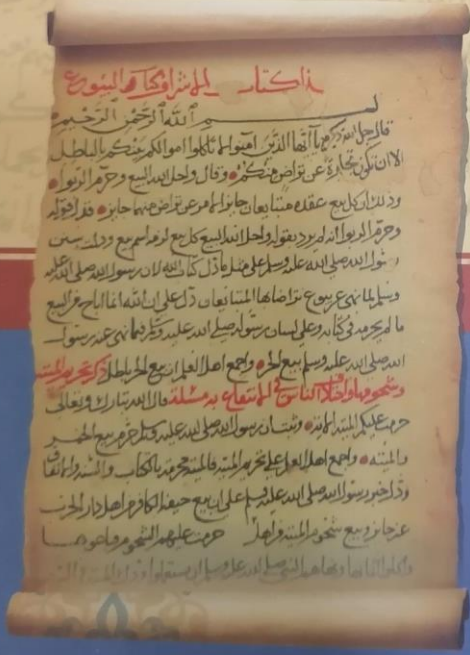 كتاب الاشراف كتاب البيوع
بسم الله الرحمن الرحيم
قال جل الله ذكره يا أيها الذين امنوا لا تاكلوا اموالكم بينكم بالباطل
الا ان تكون تجارة عن تراض منكم وقال واحل الله البيع وحرم الربوا
وذلك ان كل بيع عقده متبايعان جايز الامر عن تراض منهما جايز فقد
وحرم الربوا انه لم يرد بقوله واحل الله البيع كل بيع لزمه اسم بيع ودلت سنن
رسول الله صلى الله عليه وسلم على مثل ما دل كتاب الله لان رسول الله صلى الله عليه
وسلم لما نهى عن بيوع تراضاها المتبايعان دل على ان الله انما اباح من البيع
ما لم يحرمه في كتابه وعلى لسان رسوله صلى الله عليه وسلم فمما نهى عنه رسول
الله صلى الله عليه وسلم بيع الحر واجمع اهل العلم ان بيع الحر باطل ذكر تحريم الميتة
وشحومها واختلاف الناس في الانتفاع به مسئلة قال الله تبارك وتعالى
حرمت عليكم الميتة الاية وثبت ان رسول الله صلى الله عليه وسلم حرم بيع الخمر
والميتة واجمع اهل العلم على تحريم الميتة فالميتة محرمة بالكتاب والسنة والاتفاق
ودل خبر رسول الله صلى الله عليه وسلم على ان بيع جيفة الكافر من اهل دار الحرب
غير جايز وبيع شحوم الميتة حرمت عليهم الشحوم فباعوها
واكلوا اثمانها